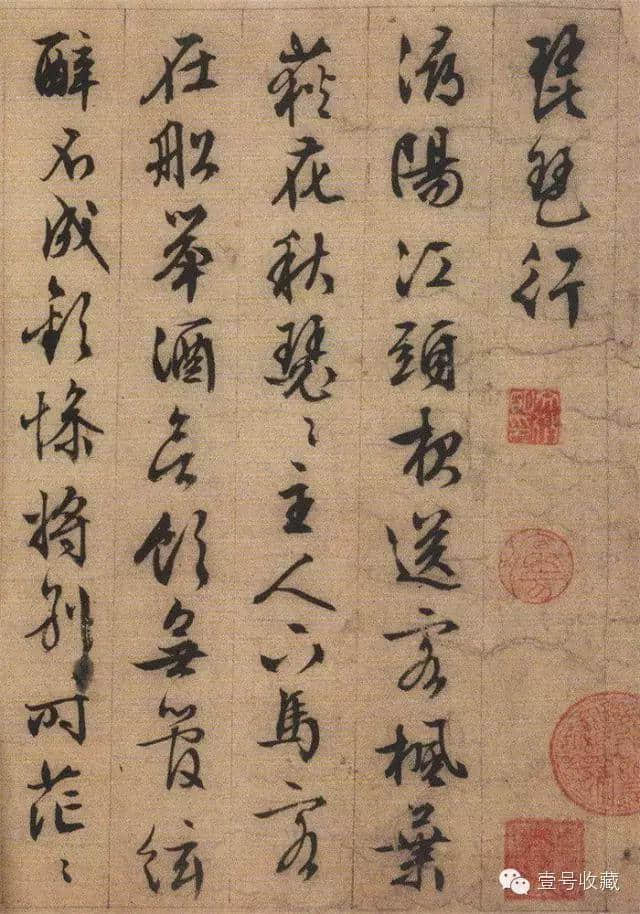 琵琶行
潯陽江頭夜送客楓葉
荻花秋瑟〻主人下馬客
在船舉酒欲飲無管絃
醉不成歡慘將別時茫〻
壹号收藏